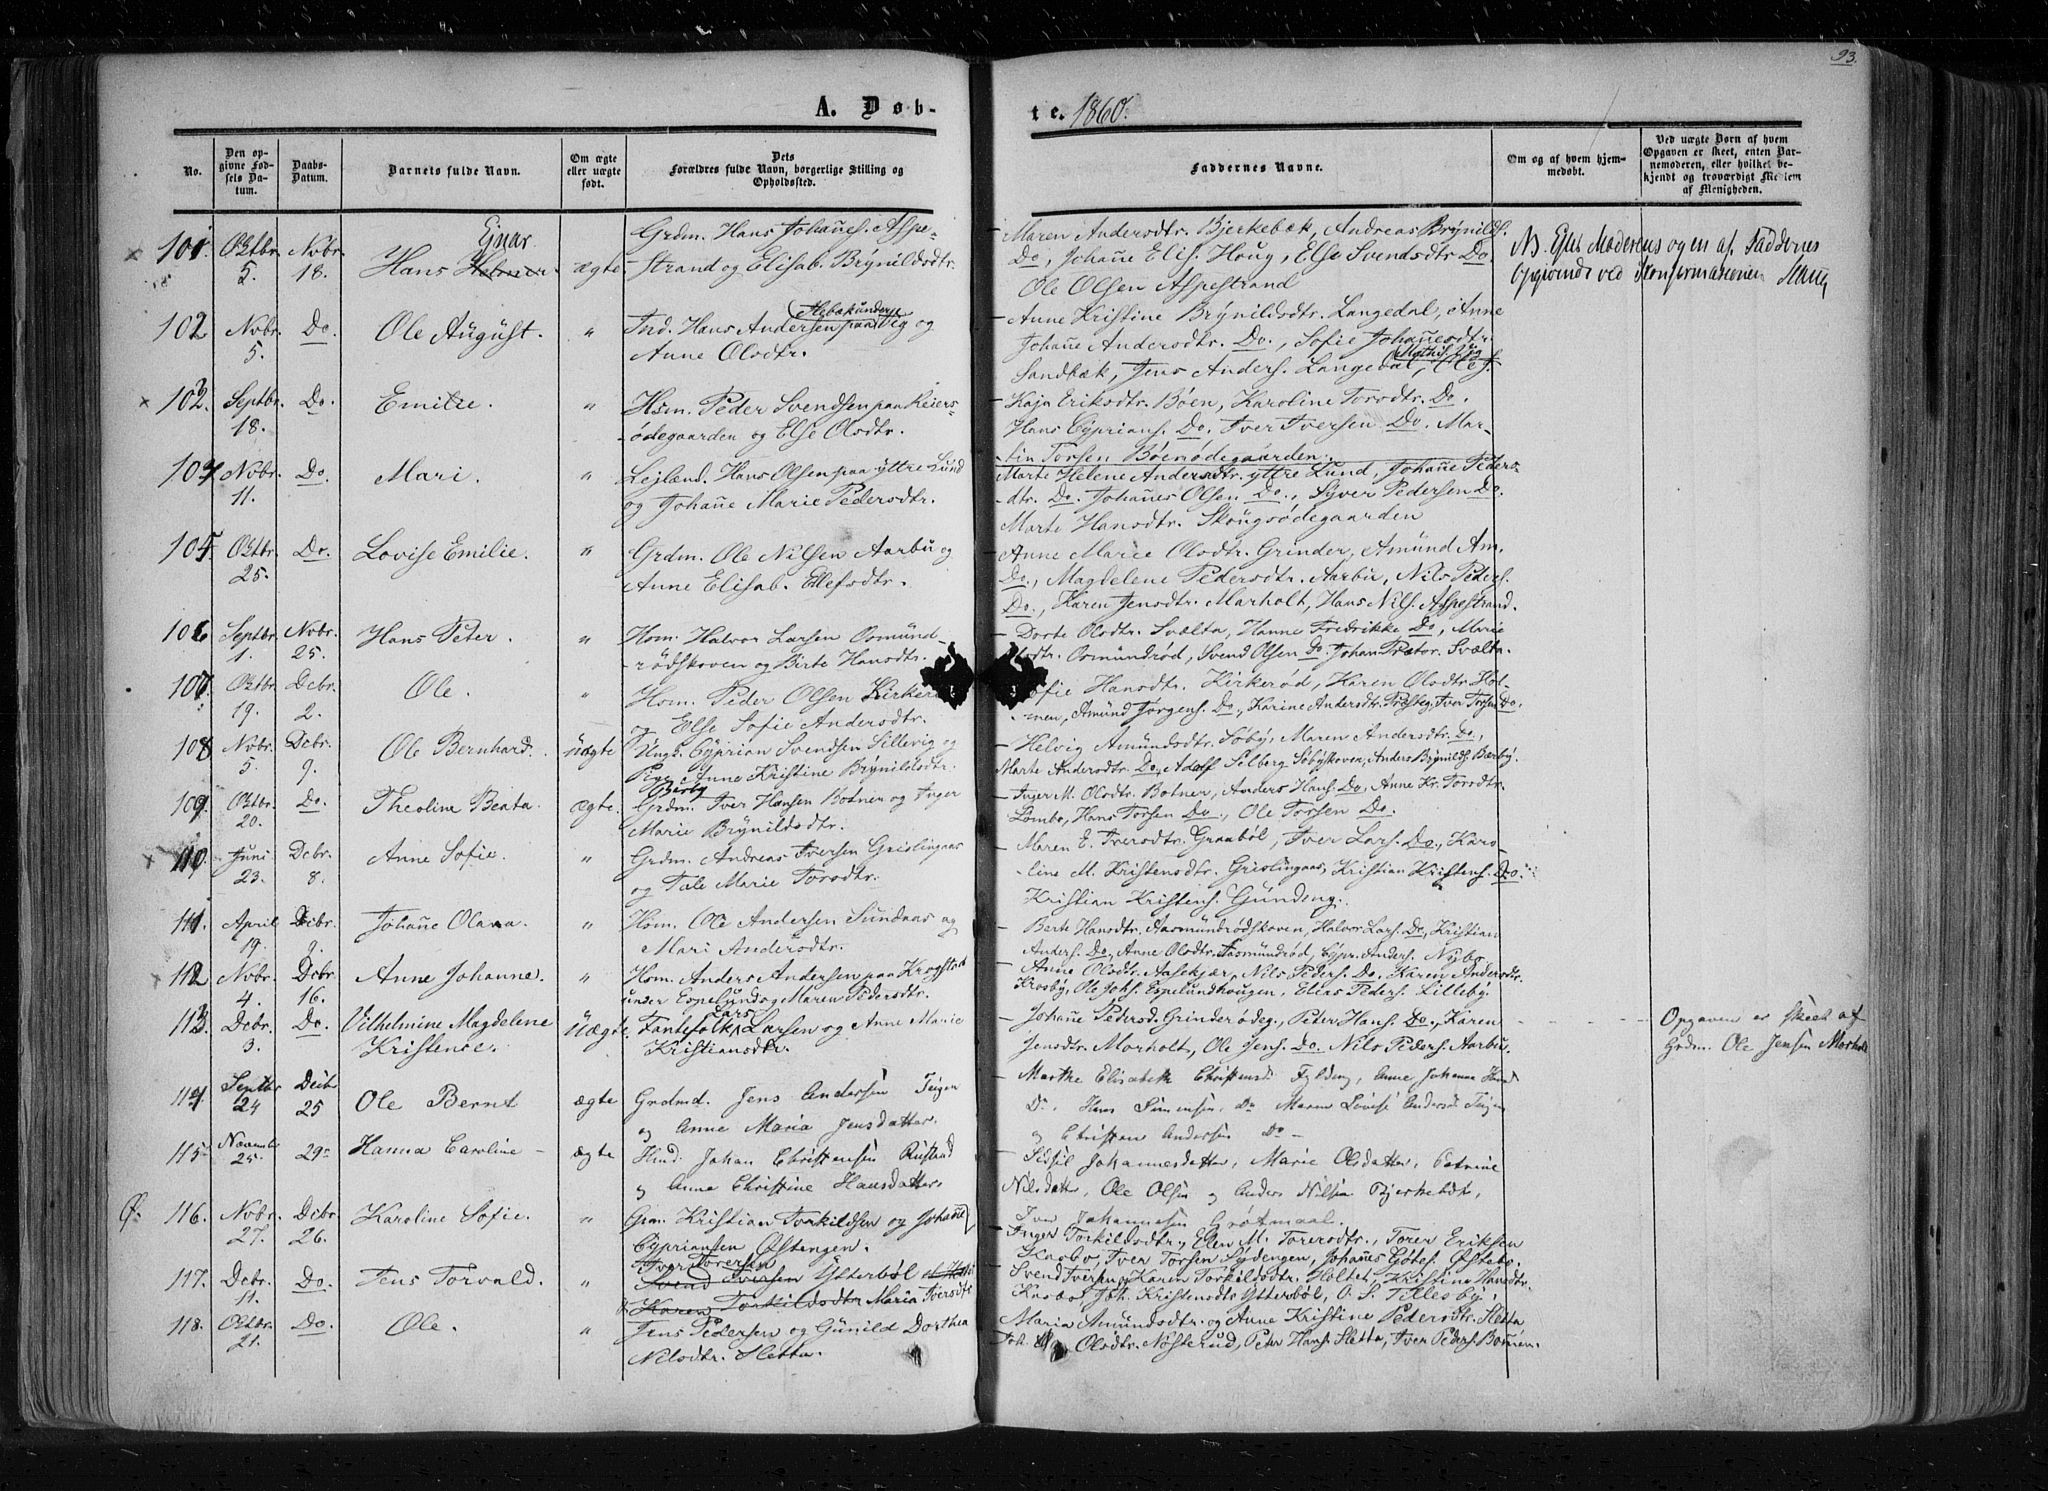 93.
A. Døb-
te. 1860.
No.
Den op-
givne Fød-
sels Da-
tum.
Daabs-
Datum.
Barnets fulde Navn.
Om ægte
eller uægte
født.
Dets
Forældres fulde Navn, borgerlige Stilling og
Opholdssted.
Faddernes Navne.
Om og af hvem hjem-
medøbt.
Ved uægte Børn af hvem
Opgaven er skeet, enten Bar-
nemoderen, eller hvilket be-
kjendt og troværdigt Medlem
af Menigheden.
101. Oktbr. 5. Novbr. 18. Hans Ejnar ægte
Grdm. Hans Johañes. Aspe-
strand og Elisab. Brynildsdtr.
Maren Andersdtr. Bjerkebæk, Andreas Brynilds.
Do, Johañe Elis. Houg, Else Svendsdtr. Do.
Ole Olsen Aspestrand
NB. Efter Moderens og en af Faddernes
Opgivende ved Konfirmationen
102 Novbr. 5. Do. Ole August. "
Ind. Hans Andersen paa Vig og
Anne Olsdtr.
Anne Kristine Brynildsdtr. Langedal, Anne
Johañe Andersdtr. Do., Sofie Johañesdtr.
Sandbæk, Jens Anders. Langedal,
103. Septbr. 18. Do. Emilie. "
Hsm. Peder Svendsen paa Reiers-
ødegaarden og Else Olsdtr.
Kaja Eriksdtr. Bøen, Karoline Torsdtr. Do.
Hans Cyprians. Do. Iver Iversen Do. Mar-
tin Torsen Bøenødegaarden.
104 Novbr. 11. Do Mari. "
Lejlænd. Hans Olsen paa yttre Lund
og Johañe Marie Pedersdtr.
Marte Helene Andersdtr. yttre Lund, Johañe Peders-
dtr. Do. Johañes Olsen Do., Syver Pedersen Do.
Marte Hansdtr. Skougsødegaarden
105 Oktbr. 25. Do. Lovise Emilie. "
Grdm. Ole Nilsen Aarbu og
Anne Elisab. Ellefsdtr.
Anne Marie Olsdtr. Grinder, Amund Am.
Do., Magdelene Pedersdtr. Aarbu, Nils Peders.
Do., Karen Jensdtr. Marholt, Hans Nils. Aspestrand.
106 Septbr. 1. Novbr. 25. Hans Peter. "
Hsm. Halvor Larsen Osmund-
rødskoven og Birte Hansdtr.
Dorte Olsdtr. Svælta, Hanne Fredrikke Do, Marie
Olsdtr. Osmundrød, Svend Olsen Do. Johan Prætor. Svælta.
107. Oktbr. 19. Dcbr. 2. Ole "
Hsm. Peder Olsen Kirkerø
og Else Sofie Andersdtr.
Sofie Hansdtr. Kirkerød, Karen Olsdtr. Hol-
men, Amund Jørgens. Do., Karine Andersdtr. Presteg, Iver Torsen Do.
108 Novbr. 5. Dcbr. 9. Ole Bernhard. uægte
Ungk. Cyprian Svendsen Sillevig og
Pige Anne Kristine Brynildsdtr.
Børby
Helvig Amundsdtr. Søby, Maren Andersdtr. Do,
Marte Andersdtr. Do, Adolf Solberg Søbyskoven, Anders Brynilds. Børby.
109. Oktbr. 20. Do. Theoline Beata. ægte.
Grdm. Iver Hansen Botner og Inger
Marie Brynildsdtr.
Inger M. Olsdtr. Botner, Anders Hans. Do, Anne Kr. Torsdtr.
Lombo, Hans Torsen Do., Ole Torsen Do.
110. Juni 23. Dcbr. 8. Anne Sofie. "
Grdm. Andreas Iversen Grislingaas
og Tale Marie Torsdtr.
Maren E. Iversdtr. Graabøl, Iver Lars. Do., Karo-
line M. Kristensdtr. Grislingaas, Kristian Kristens. Do.
Kristian Kristens. Gundeng.
111. April 19. Dcbr. 9. Johañe Olava "
Hsm. Ole Andersen Sundaas og
Mari Andersdtr.
Berte Hansdtr. Aasmundrødskoven, Halvor Lars. Do, Kristian
Anders. Do, Anne Olsdtr. Aasmundrød, Cypr. Anders. Nybo.
112 Novbr. 4. Dcbr. 16. Anne Johanne. "
Hsm. Anders Andersen paa Krogstad
under Espelund og Maren Pedersdtr.
Anne Olsdtr. Aasekjær, Nils Peders. Do, Karen Andersdtr.
Krosby, Ole Johs. Espelundhougen, Elias Peders. Lilleby.
113. Dcbr. 3. Do Vilhelmine Magdelene
Kristence. Uægte
Fantefolk Lars Larsen og Anne Marie
Kristiansdtr.
Johañe Pedersd. Grinderødeg., Peter Hans. Do, Karen
Jensdtr. Marholt, Ole Jens. Do. Nils Peders. Aarbu.
Opgaven er skeet af
Grdm. Ole Jensen Marholt
114. Septbr 24 Decbr 25 Ole Bernt ægte
Grdmd. Jens Andersen Teigen
og Anne Maria Jensdatter.
Marthe Elisabeth Christensd. Fylding, Anne Johanna
Do. Hans Simensen, Do Maren Lovise Andersd. Teigen
og Christian Andersen Do
115 Novembr 25. 29 Hanna Caroline ægte
Hmd. Johan Christensen Rustand
og Anne Christine Hansdatter
Sidsil Johannesdatter, Marie Olsdatter, Cathrine
Nilsdatter, Ole Olsen og Anders Nilsen Bjerkebæk,
Iver Johannesen Grøtmaal.
Ø. 116. Novbr. 27. Dcbr. 26. Karoline Sofie. "
Grm. Kristian Torkildsen og Johañe
Cypriansen Østengen.
Inger Torkildsdtr., Elen M. Torersdtr., Torer Eriksen
Kasbo, Iver Torsen Sydengen, Johañes Gotes. Østebø.
117. Dcbr. 11. Do. Jens Torvald. "
Iver Iversen
Svend Iversen Ytterbøl
Karen Torkildsdtr Maria Iversdtr
Svend Iversen, Karen Torkildsdtr. Holtet, Kristine Hansdtr.
Kasbo, Joh. Kristensdtr. Ytterbøl, O. S. Tillesby.
118. Oktbr. 21. Do. Ole. "
Jens Pedersen og Gunild Dorthea
Nilsdtr. Sletta.
Maria Amundsdtr. og Anne Kristine Pedersdtr. Sletta
Joh. Olsdtr. Nøsterud, Peter Hans. Sletta, Iver Peders. Botnen.